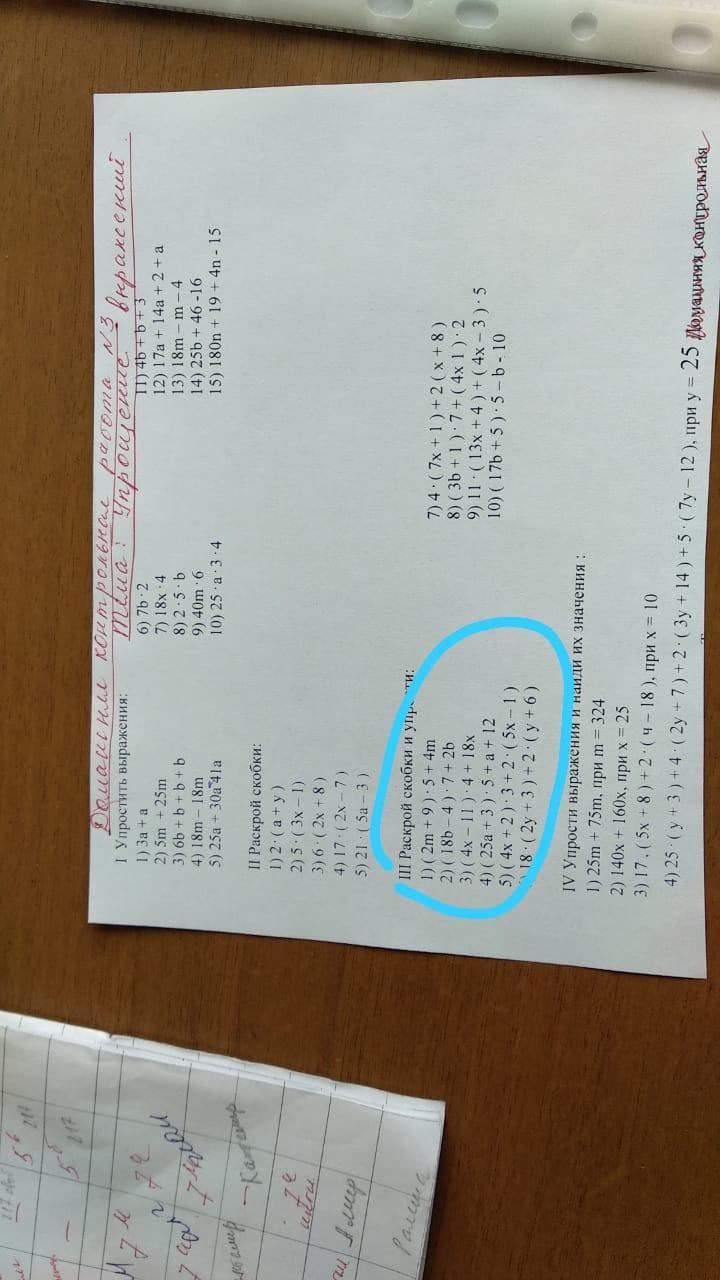 Домашняя контрольная работа №3
Тема: Упрощение выражений.
I Упростить выражения:
1) 3a + a
2) 5m + 25m
3) 6b + b + b + b
4) 18m – 18m
5) 25a + 30a 41a
6) 7b · 2
7) 18x · 4
8) 2 · 5 · b
9) 40m · 6
10) 25 · a · 3 · 4
11) 4b + b + 3
12) 17a + 14a + 2 + a
13) 18m – m – 4
14) 25b + 46 -16
15) 180n + 19 + 4n - 15
II Раскрой скобки:
1) 2 · ( a + y )
2) 5 · ( 3x – 1)
3) 6 · ( 2x + 8 )
4) 17 · ( 2x – 7 )
5) 21 · ( 5a – 3 )
III Раскрой скобки и упрости:
1) ( 2m + 9 ) · 5 + 4m
2) ( 18b – 4 ) · 7 + 2b
3) ( 4x – 11 ) · 4 + 18x
4) ( 25a + 3 ) · 5 + a + 12
5) ( 4x + 2 ) · 3 + 2 · ( 5x – 1 )
18 · ( 2y + 3 ) + 2 · ( y + 6 )
7) 4 · ( 7x + 1 ) + 2 ( x + 8 )
8) ( 3b + 1 ) · 7 + ( 4x 1 ) · 2
9) 11 · ( 13x + 4 ) + ( 4x – 3 ) · 5
10) ( 17b + 5 ) · 5 – b - 10
IV Упрости выражения и найди их значения :
1) 25m + 75m, при m = 324
2) 140x + 160x, при x = 25
3) 17 . ( 5x + 8 ) + 2 · ( ч – 18 ), при x = 10
4) 25 · ( y + 3 ) + 4 · ( 2y + 7 ) + 2 · ( 3y + 14 ) + 5 · ( 7y – 12 ), при y = 25 Домашняя контрольная
5б 217
5б 217
7ч
Камтир
7ч
Амир